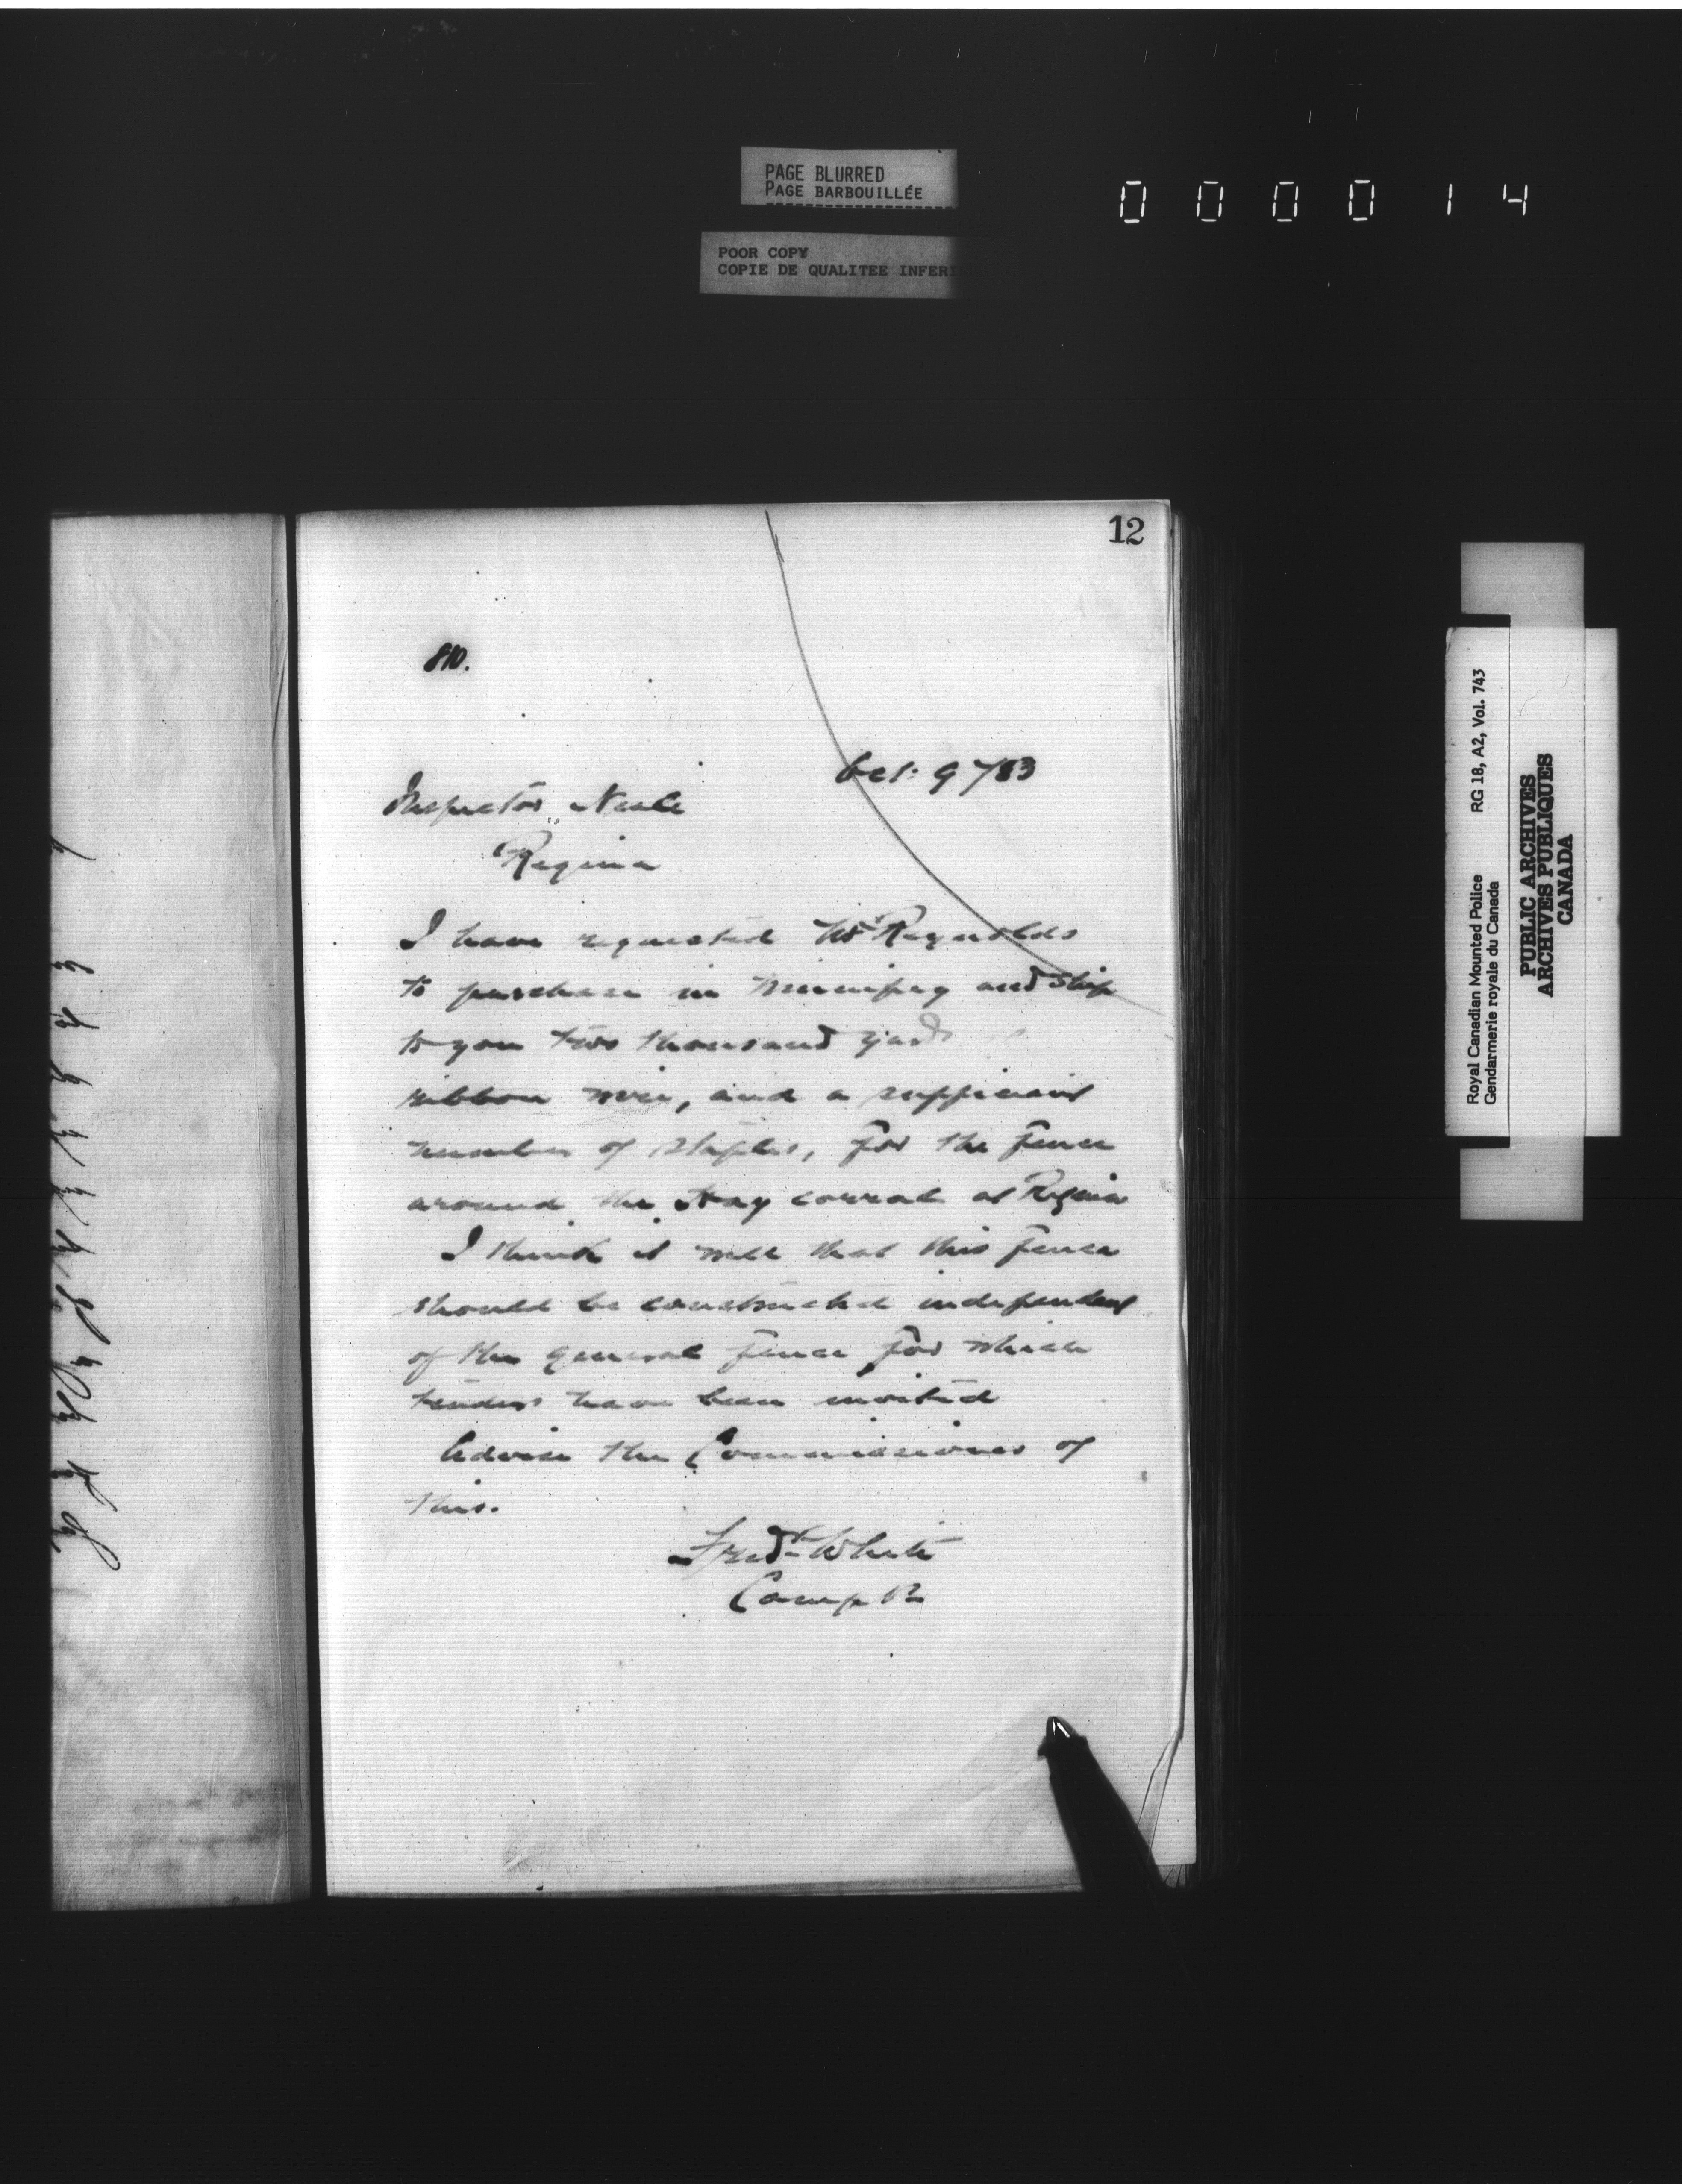 PAGE BLURRED
PAGE BARBOUILLÉE
000014
POOR COPY
COPIE DE QUALITEE INFERI
12
810.
Oct: 9 / 83
Inspector Neale
Regina
I have requested Mr Reynolds
to purchase in Winnipeg and ship
to you two thousand yards of
ribbon wire, and a sufficient
number of staples, for the fence
around the Hay corral at Regina
I think it well that this fence
should be constructed independent
of the general fence for which
tenders have been invited
Advise the Commissioner of
this.
Fred White
Comp R
Royal Canadian Mounted Police RG 18, A2, Vol. 743
Gendarmerie royale du Canada
PUBLIC ARCHIVES
ARCHIVES PUBLIQUES
CANADA